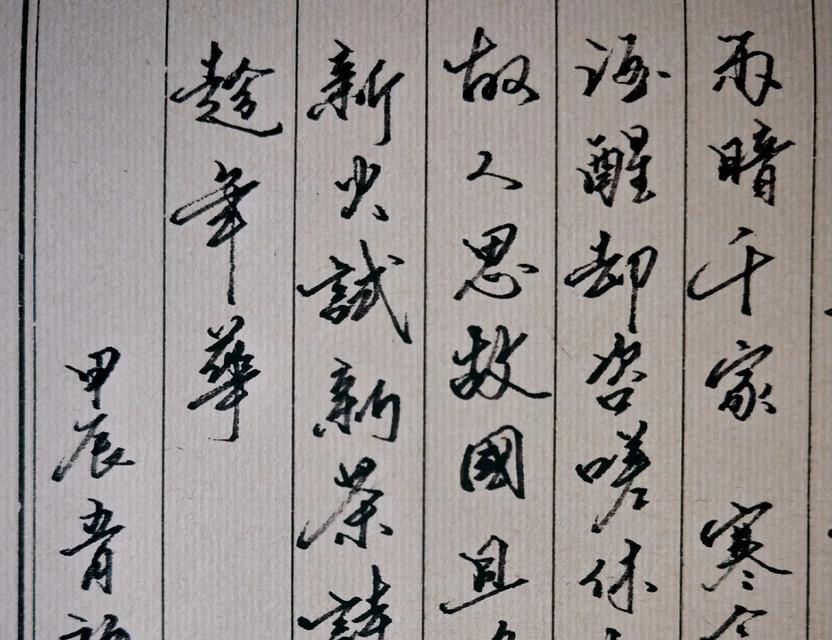 雨暗千家 寒食
酒醒却咨嗟休
故人思故國且
新火試新茶詩
趁年華
甲辰